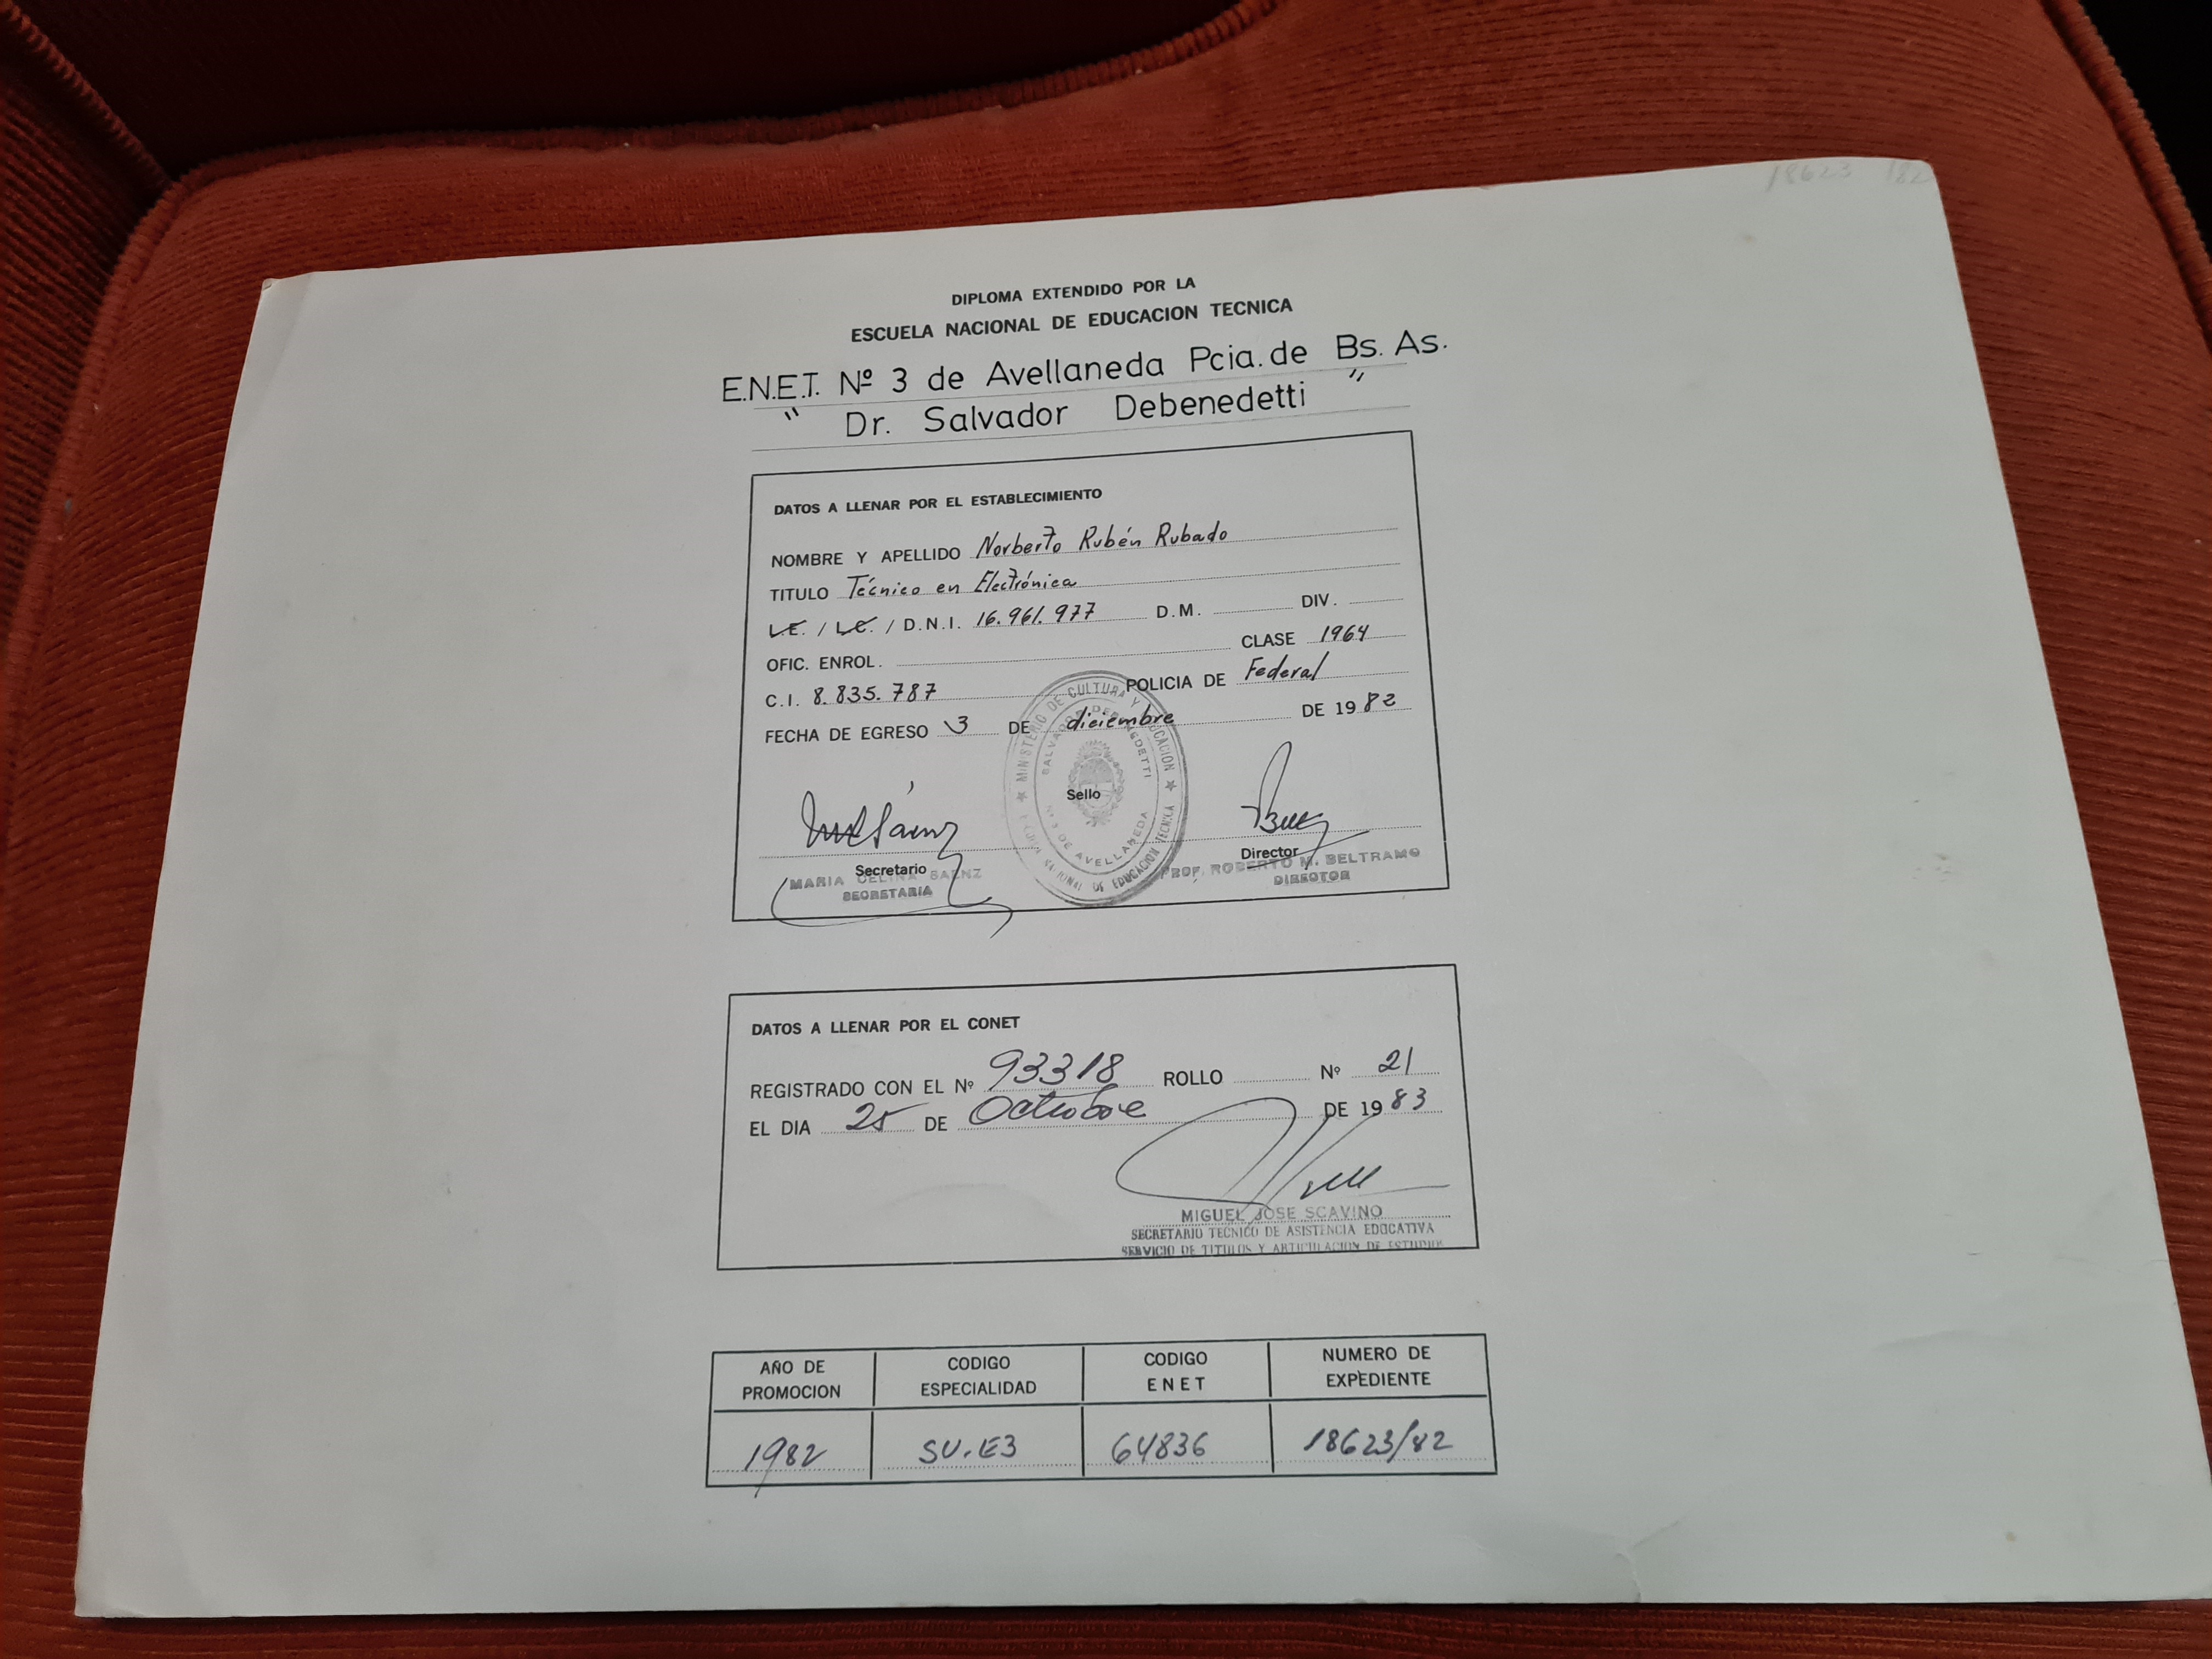 18623 182
DIPLOMA EXTENDIDO POR LA
ESCUELA NACIONAL DE EDUCACION TECNICA
E.N.E.T. Nº 3 de Avellaneda Pcia. de Bs. As.
" Dr. Salvador Debenedetti "
DATOS A LLENAR POR EL ESTABLECIMIENTO
NOMBRE Y APELLIDO Norberto Rubén Rubado
TITULO Técnico en Electrónica
L.E. / L.C. / D.N.I. 16.961.977 D.M. DIV.
OFIC. ENROL. CLASE 1964
C.I. 8.835.787 POLICIA DE Federal
FECHA DE EGRESO 3 DE diciembre DE 1982
MINISTERIO DE CULTURA Y EDUCACION
SALVADOR DEBENEDETTI
Nº 3 DE AVELLANEDA
NACIONAL DE EDUCACION TECNICA
Sello
Secretario
MARIA CELINA SAENZ
SECRETARIA
Director
PROF. ROBERTO M. BELTRAMO
DIRECTOR
DATOS A LLENAR POR EL CONET
REGISTRADO CON EL Nº 93318 ROLLO Nº 21
EL DIA 25 DE Octubre DE 1983
MIGUEL JOSE SCAVINO
SECRETARIO TECNICO DE ASISTENCIA EDUCATIVA
SERVICIO DE TITULOS Y ARTICULACION DE ESTUDIOS
AÑO DE PROMOCION CODIGO ESPECIALIDAD CODIGO ENET NUMERO DE EXPEDIENTE
1982 SU.E3 64836 18623/82